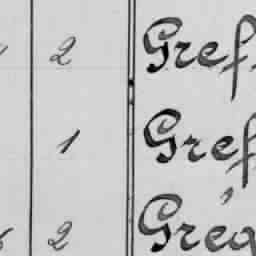 2 Gref
1 Gref
2 Greg